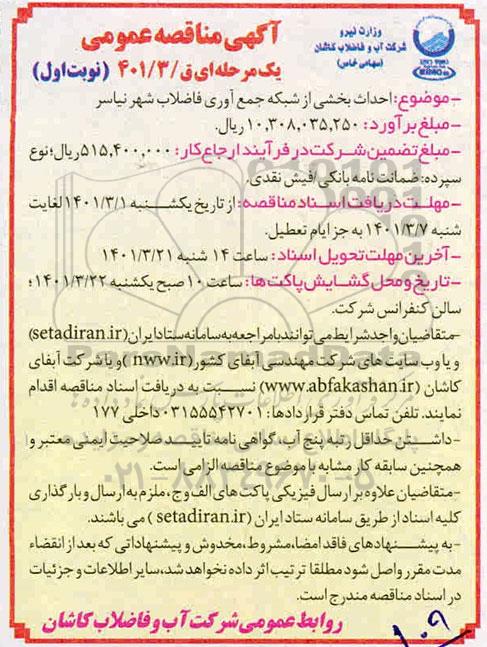 وزارت نیرو
شرکت آب و فاضلاب کاشان
(سهامی خاص)
آگهی مناقصه عمومی
یک مرحله‌ای ق/۴۰۱/۳ (نوبت اول)
-موضوع: احداث بخشی از شبکه جمع آوری فاضلاب شهر نیاسر
-مبلغ برآورد: ۱۰,۳۰۸,۰۳۵,۲۵۰ ریال.
-مبلغ تضمین شرکت در فرآیند ارجاع کار: ۵۱۵,۴۰۰,۰۰۰ ریال؛ نوع
سپرده: ضمانت نامه بانکی/فیش نقدی.
-مهلت دریافت اسناد مناقصه: از تاریخ یکشنبه ۱۴۰۱/۳/۱ لغایت
شنبه ۱۴۰۱/۳/۷ به جز ایام تعطیل.
-آخرین مهلت تحویل اسناد: ساعت ۱۴ شنبه ۱۴۰۱/۳/۲۱
-تاریخ و محل گشایش پاکت‌ها: ساعت ۱۰ صبح یکشنبه ۱۴۰۱/۳/۲۲؛
سالن کنفرانس شرکت.
-متقاضیان واجد شرایط می‌توانند با مراجعه به سامانه ستاد ایران (setadiran.ir)
و یا وب سایت های شرکت مهندسی آبفای کشور (nww.ir) و یا شرکت آبفای
کاشان (www.abfakashan.ir) نسبت به دریافت اسناد مناقصه اقدام
نمایند. تلفن تماس دفتر قراردادها: ۰۳۱۵۵۵۴۲۷۰۱ داخلی ۱۷۷
-داشتن حداقل رتبه پنج آب، گواهی نامه تایید صلاحیت ایمنی معتبر و
همچنین سابقه کار مشابه با موضوع مناقصه الزامی است.
-متقاضیان علاوه بر ارسال فیزیکی پاکت های الف و ج، ملزم به ارسال و بارگذاری
کلیه اسناد از طریق سامانه ستاد ایران (setadiran.ir) می باشند.
-به پیشنهادهای فاقد امضاء، مشروط، مخدوش و پیشنهاداتی که بعد از انقضاء
مدت مقرر واصل شود مطلقا ترتیب اثر داده نخواهد شد، سایر اطلاعات و جزئیات
در اسناد مناقصه مندرج است.
روابط عمومی شرکت آب و فاضلاب کاشان
۱۰۹
ParsNamadData
۰۲۱-۸۸۳۴۹۶۷۰-۵